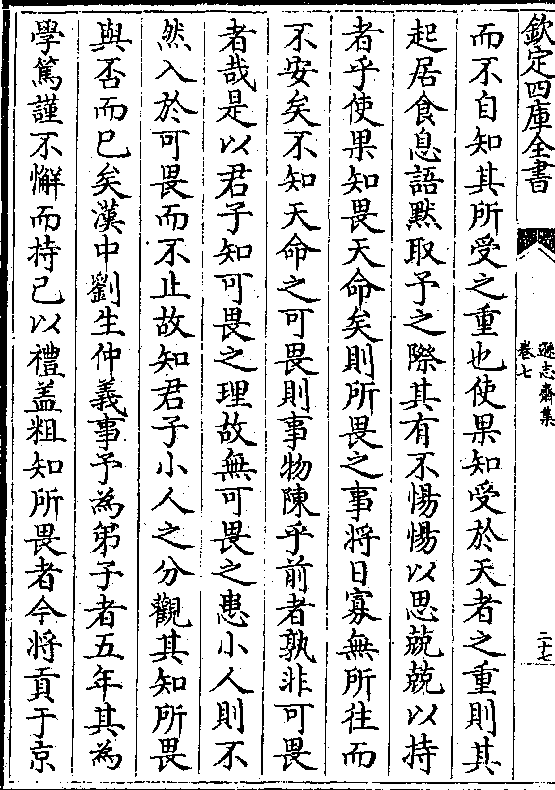 欽定四庫全書
遜志齋集
卷七
二十七
而不自知其所受之重也使果知受於天者之重則其
起居食息語黙取予之際其有不惕惕以思兢兢以持
者乎使果知畏天命矣則所畏之事將日寡無所往而
不安矣不知天命之可畏則事物陳乎前者孰非可畏
者哉是以君子知可畏之理故無可畏之患小人則不
然入於可畏而不止故知君子小人之分觀其知所畏
與否而已矣漢中劉生仲義事予為弟子者五年其為
學篤謹不懈而持己以禮蓋粗知所畏者今將貢于京